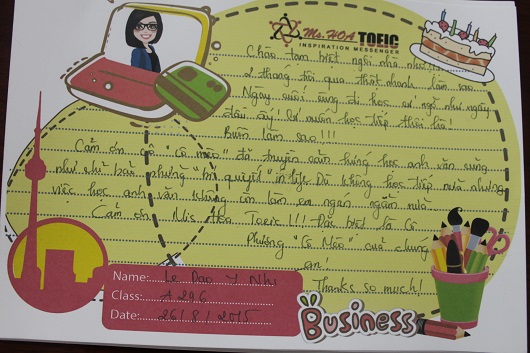 Ms.HOA TOEIC
INSPIRATION MESSENGERS
Chào tạm biệt ngôi nhà
2 tháng trôi qua thật nhanh làm sao
Ngày cuối cùng đi học cứ ngỡ như ngày
đầu ấy! học tiếp thôi hà!
Buồn làm sao!!!
Cảm ơn cô "Cô mèo" đã truyền cảm hứng học anh văn cũng
như chỉ bảo những "bí quyết" in life. Dù không học tiếp nữa nhưng
việc học anh văn không còn làm em ngán ngẩm nữa
Cảm ơn Ms Hoa Toeic!!! Đặc biệt là Cô
Phương "Cô Mèo" của chúng
em!
Thanks so much!
Name: Le Dao Y Nhi
Class: A296
Date: 26/8/2015
Business